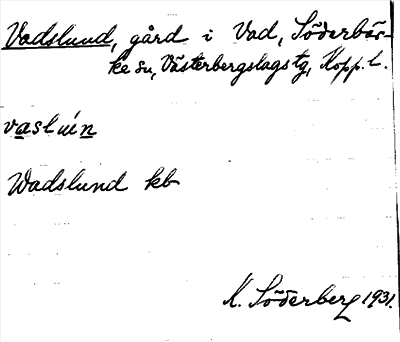 Vadslund, gård i Vad, Söderbär-
ke sn, Västerbergslags tg, Kopp. l.
vaslún
Wadslund kb
K. Söderberg 1931.